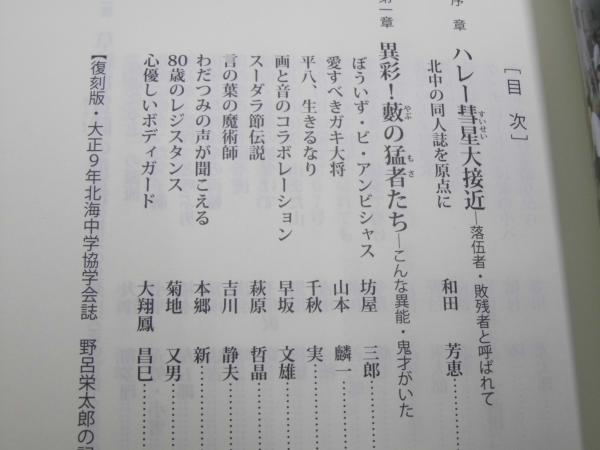 ［目 次］
序 章 ハレー彗星大接近―落伍者・敗残者と呼ばれて
すいせい
北中の同人誌を原点に 和田 芳恵………
第一章 異彩！藪の猛者たち―こんな異能・鬼才がいた
やぶ もさ
ぼういず・ビ・アンビシャス 坊屋 三郎………
愛すべきガキ大将 山本 麟一………
平八、生きるなり 千秋 実………
画と音のコラボレーション 早坂 文雄………
スーダラ節伝説 萩原 哲晶………
言の葉の魔術師 吉川 静夫………
わだつみの声が聞こえる 本郷 新………
80歳のレジスタンス 菊地 又男………
心優しいボディガード 大翔鳳 昌巳………
【復刻版・大正9年北海中学協学会誌 野呂栄太郎の